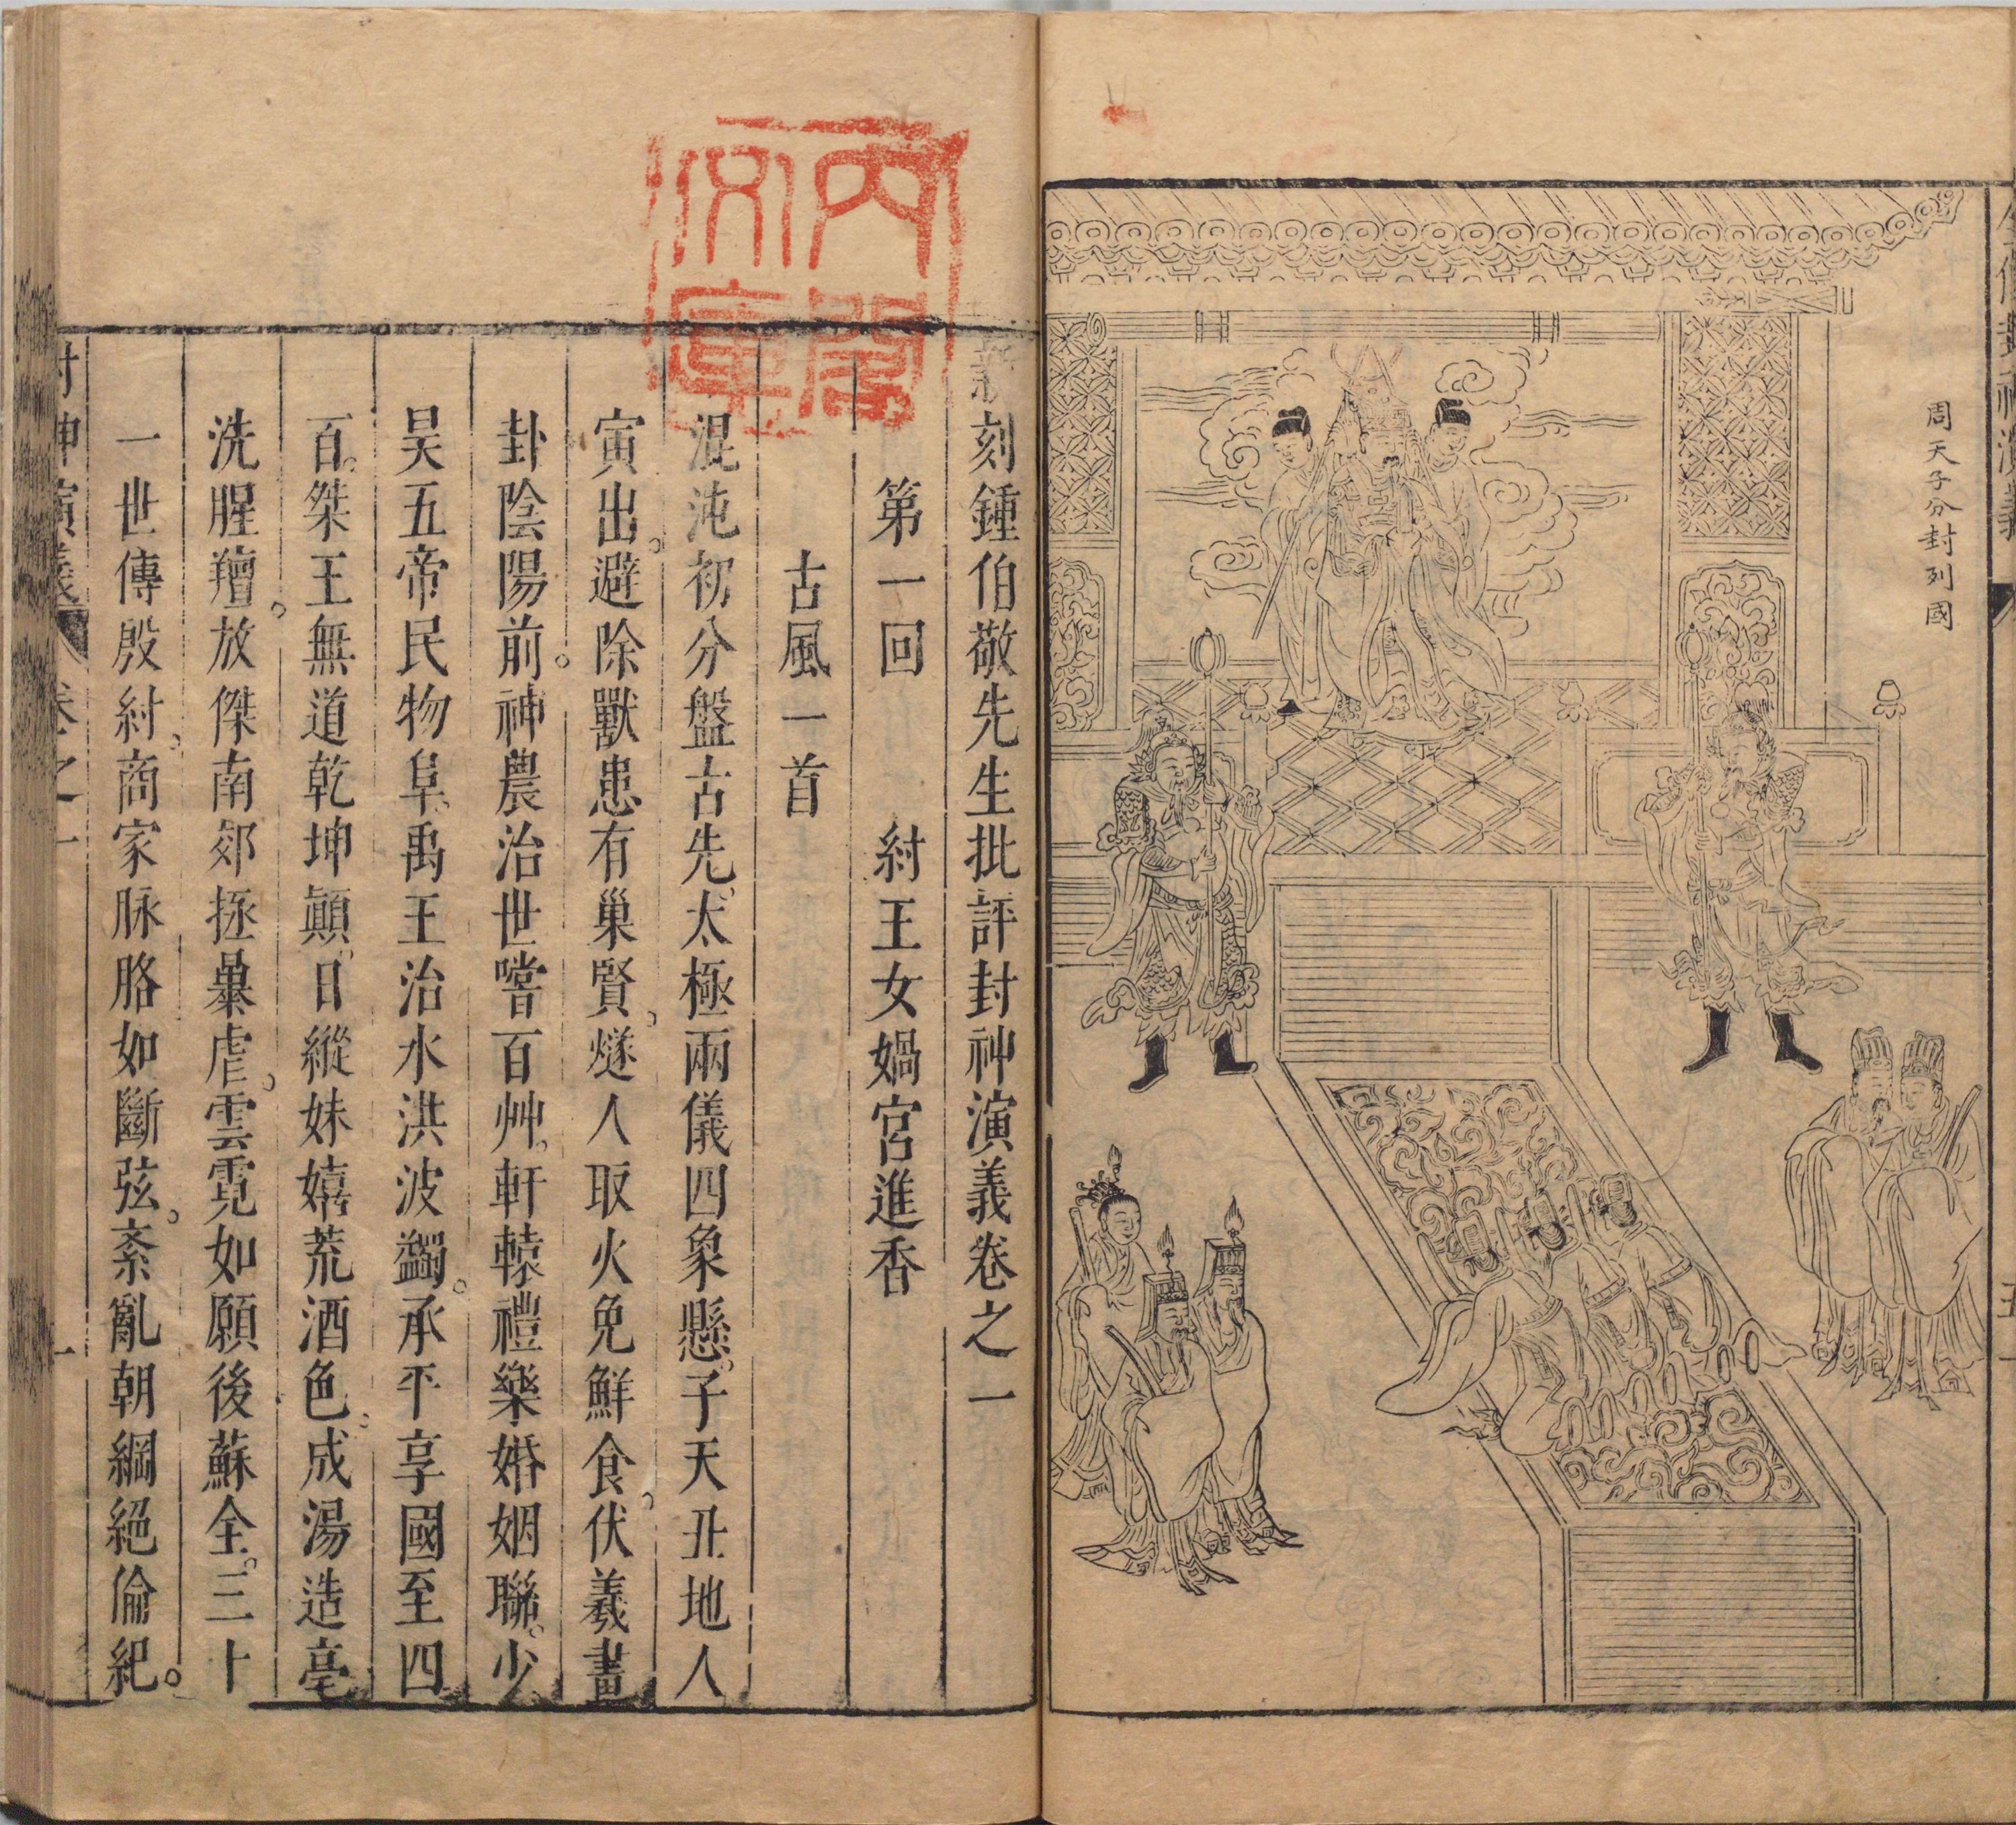 周天子分封列國
新刻鍾伯敬先生批評封神演義卷之一
第一回　紂王女媧宮進香
古風一首
混沌初分盤古先、太極兩儀四象懸。子天丑地人
寅出。避除獸患有巢賢。燧人取火免鮮食。伏羲畫
卦陰陽前。神農治世嘗百艸。軒轅禮樂婚姻聯。少
昊五帝民物阜。禹王治水洪波蠲。承平享國至四
百。桀王無道乾坤顛。日縱妹嬉荒酒色。成湯造亳
洗腥羶。放傑南郊拯暴虐。雲霓如願後蘇全。三十
一世傳殷紂。商家脉胳如斷弦。紊亂朝綱絕倫紀。
封神演義　卷之一　一
內閣
文庫